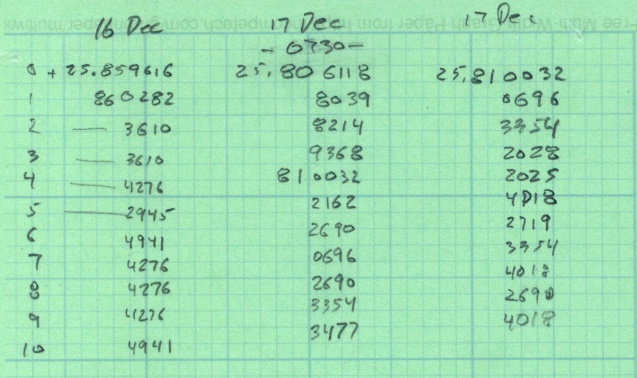 16 Dec 17 Dec 17 Dec
- 0730 -
0 + 25.859616 25.806118 25.810032
1 860282 8039 0696
2 — 3610 8214 3354
3 — 3610 9368 2028
4 — 4276 810032 2025
5 — 2945 2162 4018
6 4941 2690 2719
7 4276 0696 3354
8 4276 2690 4018
9 4276 3354 2690
10 4941 3477 4018